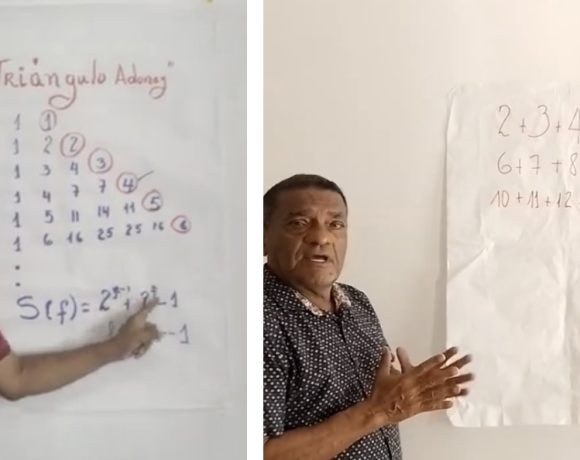 Triángulo Adonay"
1 1
1 2 2
1 3 4 3
1 4 7 7 4
1 5 11 14 11 5
1 6 16 25 25 16 6
S(f)=
- 1
- 1
2+3+4
6+7+8
10+11+12